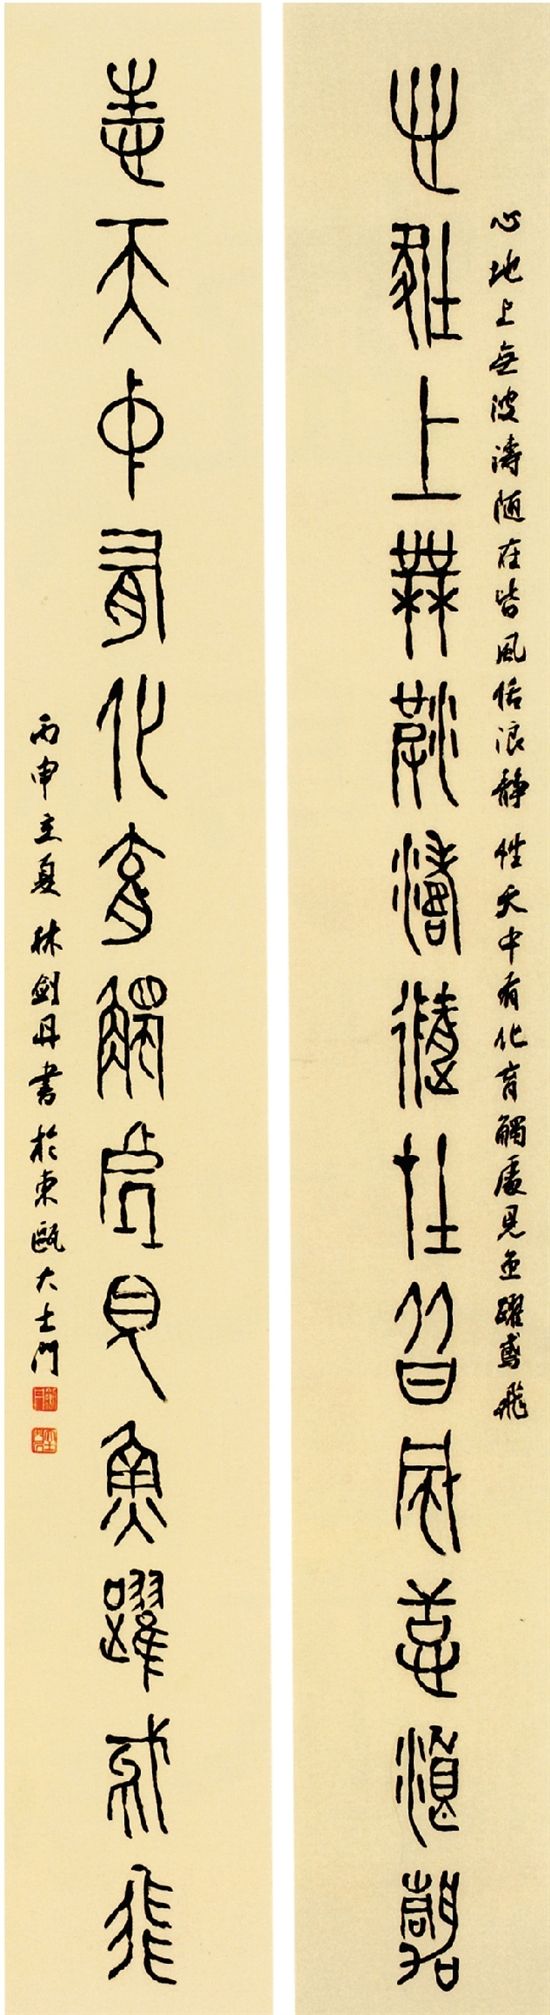 心地上無波濤隨在皆風恬浪靜
性天中有化育觸處見魚躍鳶飛
心地上無波濤随在皆風恬浪靜 性天中有化育觸處見魚躍鳶飛
丙申立夏 林劍丹書於東甌大士門